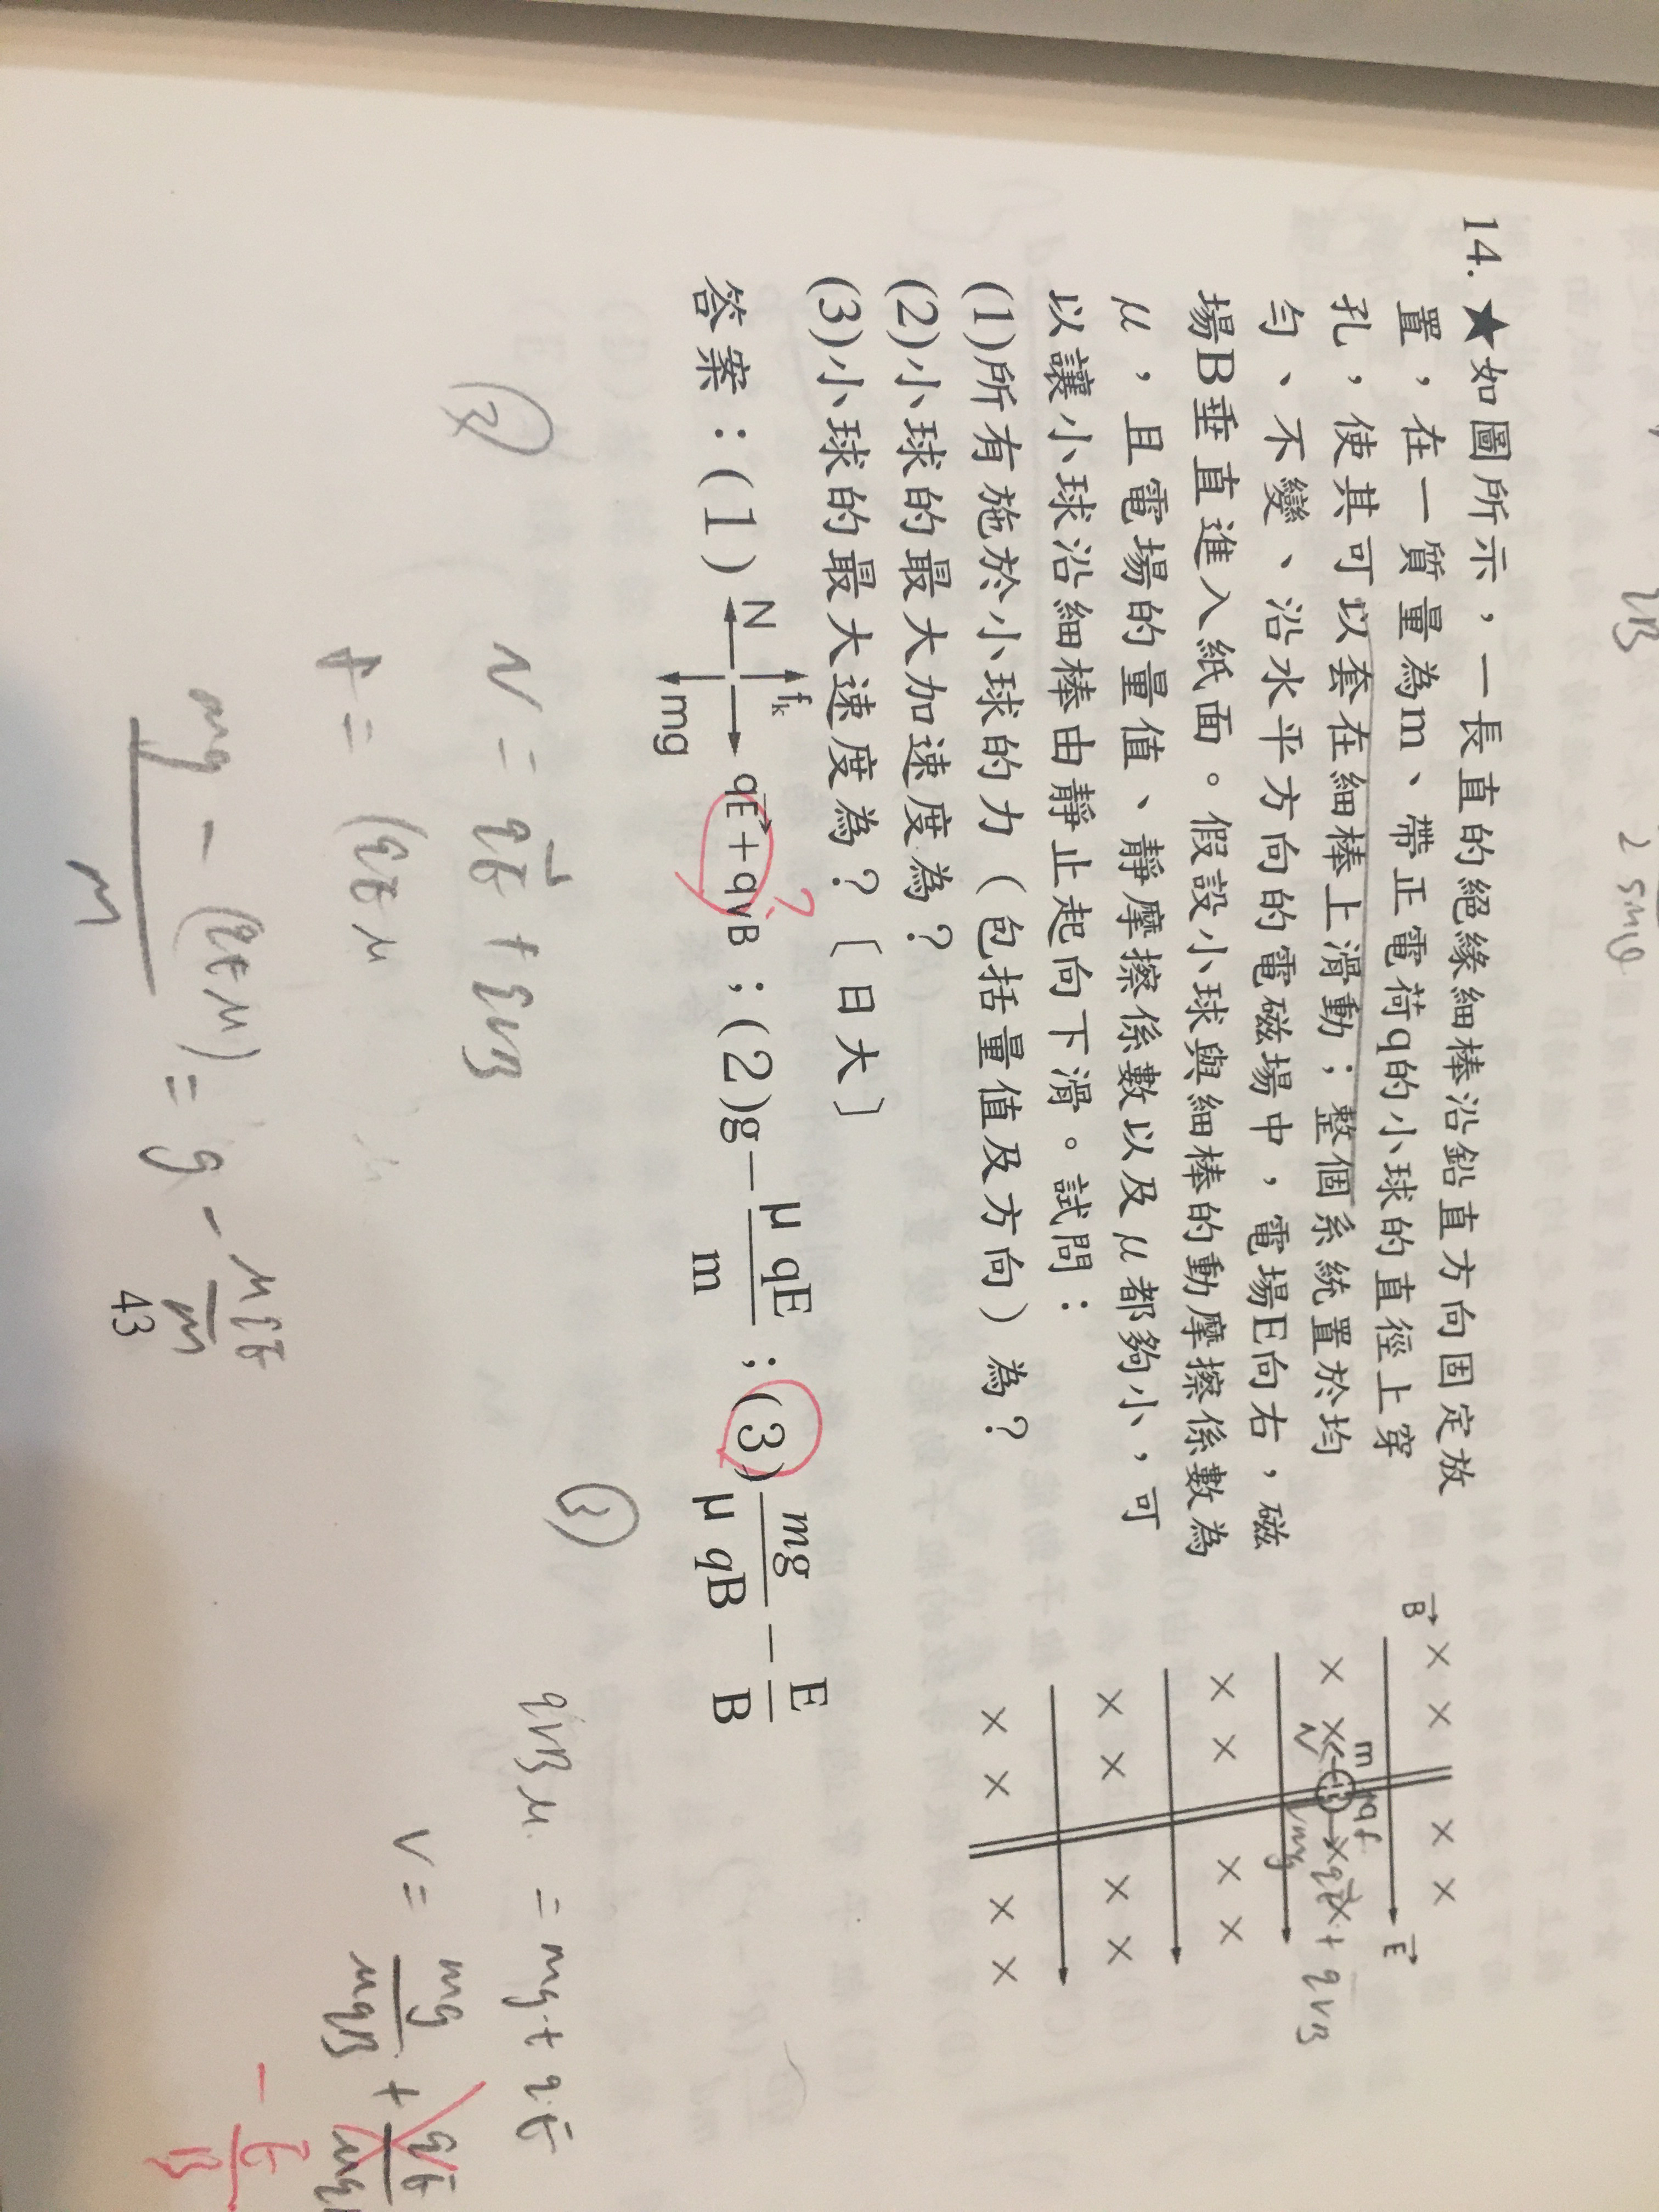 14.★如圖所示，一長直的絕緣細棒沿鉛直方向固定放
置，在一質量為m、帶正電荷q的小球的直徑上穿
孔，使其可以套在細棒上滑動；整個系統置於均
勻、不變、沿水平方向的電磁場中，電場E向右，磁
場B垂直進入紙面。假設小球與細棒的動摩擦係數為
μ，且電場的量值、靜摩擦係數以及μ都夠小，可
以讓小球沿細棒由靜止起向下滑。試問：
(1)所有施於小球的力（包括量值及方向）為？
(2)小球的最大加速度為？
(3)小球的最大速度為？〔日大〕
答案：(1) N fk mg qE+qvB ；(2)g－μqE/m ；(3) mg/μqB － E/B
B × × × ×
E
m q f
N × × mg qE + qvB
× × × ×
× × × ×
× × × ×
?
N = qE + qvB
f = (qEμ
mg - (qEμ) / m = g - μqE/m
③
qvBμ = mg + qE
v = mg/μqB +
- E/B
43
2 sinθ